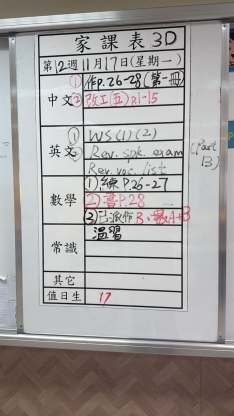 家課表3D
第12週11月17日(星期一)
中文 ①作P.26-28(第一冊)
②改工(五)P.1-15
英文 ① WS(1)(2)
② Rev. spk. exam (Part B)
Rev. voc. list
數學 ①練P.26-27
②書P.28
③已派作B、A+B
常識 溫習
其它
值日生 17